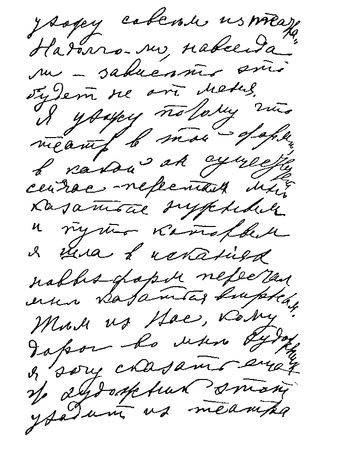 ухожу совсем из театра.
Надолго-ли, навсегда
ли – зависеть это
будет не от меня.
Я ухожу потому что
театр в той форме,
в какой он существует
сейчас – перестал мне
казаться нужным
и путь которым
я шла в исканиях
новых форм перестал
мне казаться верным.
Тем из Вас, кому
дорог во мне художник
я хочу сказать еще
художник этот
уходит из театра